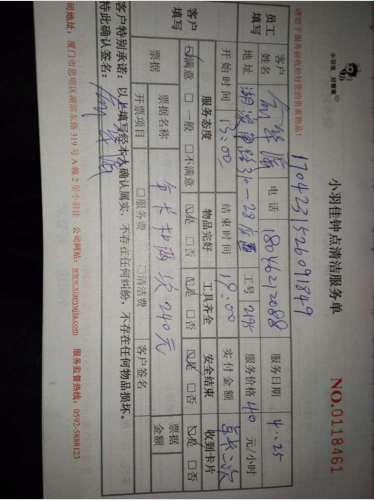 小羽佳 好管家
请您于服务前收拾好您的贵重物品!
小羽佳钟点清洁服务单
NO.0118461
1704231526091849
员工填写
客户姓名
电话 18046212088
服务日期 4.25
地址
工号
服务价格 40 元/小时
开始时间 13:00
结束时间 19:00
实付金额
客户填写
服务态度
物品完好
工具齐全
安全结束
收到卡片
☑满意 □一般 □不满意
☑是 □否
☑是 □否
☑是 □否
☑是 □否
票据
票据名称
年卡扣两次 240元
票据金额
开票项目 □服务费 □清洁费
客户签名
客户特别承诺:以上填写经本人确认属实,不存在任何纠纷,不存在任何物品损坏。
特此确认签名:
司地址:厦门市思明区湖滨东路319号A幢2层小羽佳 公司网站:www.xiaoyujia.com 服务监督热线:0592-5888123